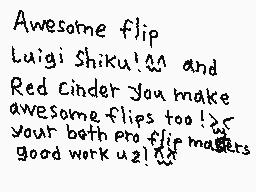 Awesome flip
Luigi Shiku!^^ and
Red Cinder you make
awesome flips too!><
your both pro flip masters
good work u2!^^